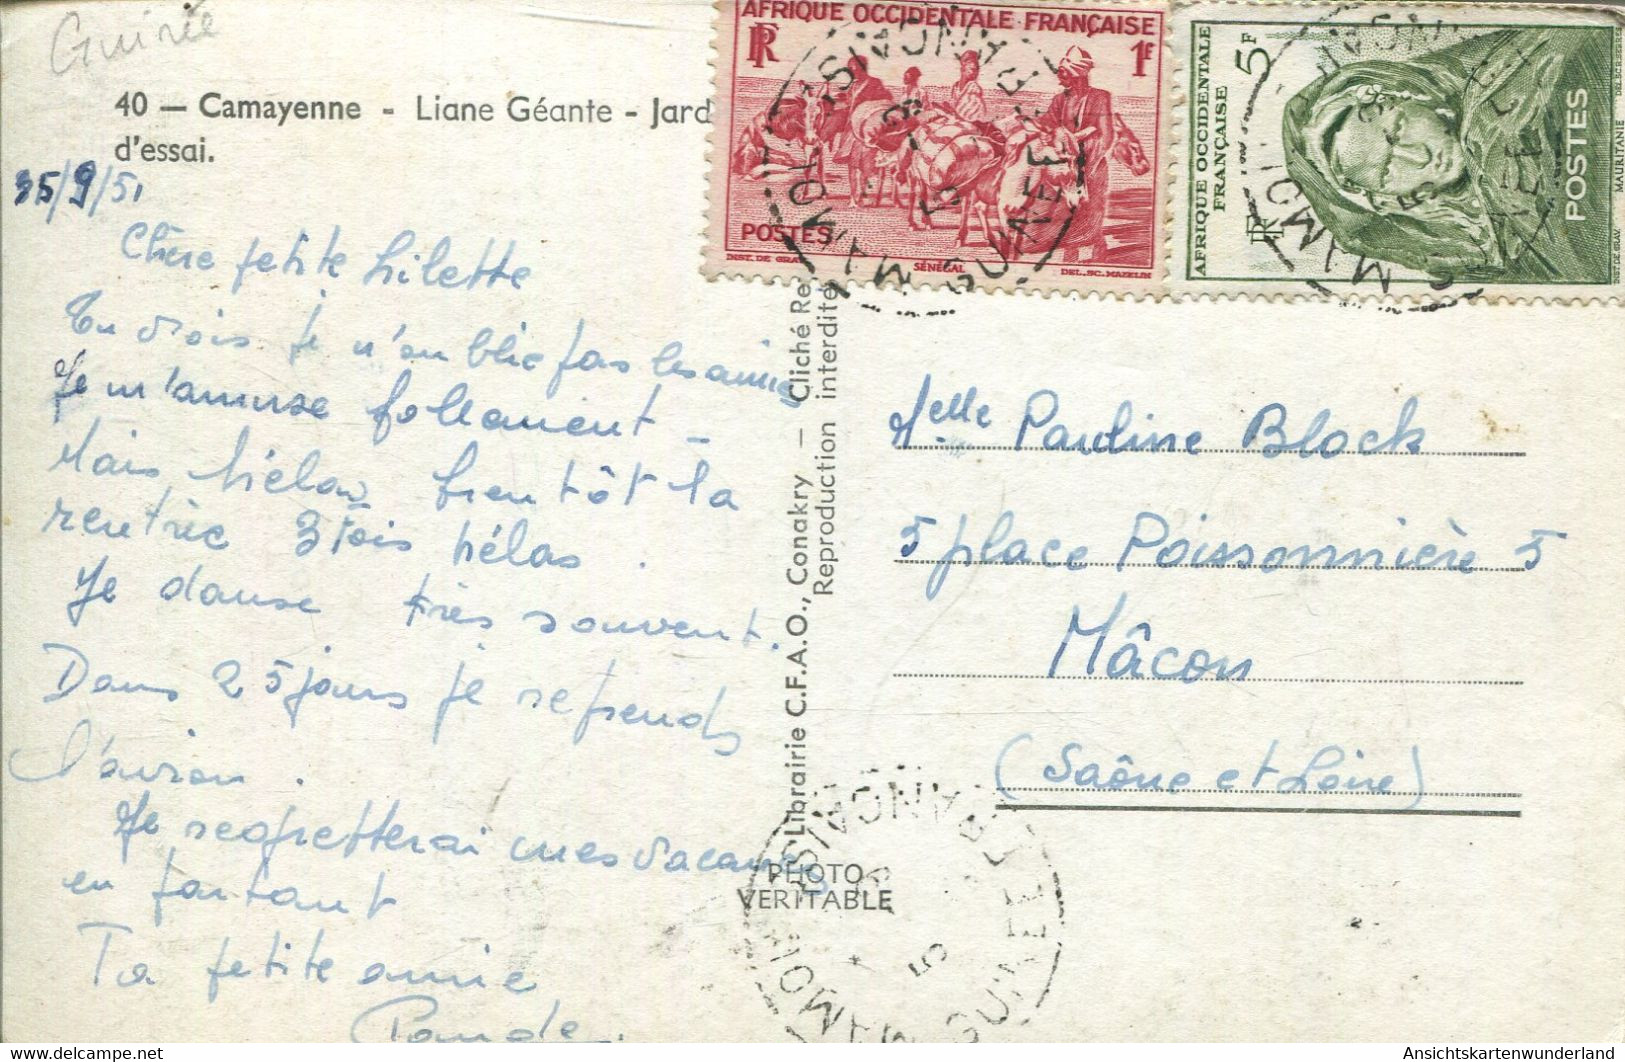 Guinée
40 — Camayenne - Liane Géante - Jard
d'essai.
AFRIQUE OCCIDENTALE FRANÇAISE
RF
1F
POSTES
INST. DE GRAV.
SÉNÉGAL
DEL. SC. MAZELIN
AFRIQUE OCCIDENTALE
FRANÇAISE
5F
RF
POSTES
MAURITANIE
INST. DE GRAV.
MAMOU
GUINEE FRANCAISE
/9/51
Chère petite Lilette
Tu vois je n'oublie pas les amies
Je m'amuse follement -
Mais hélas bientôt la
rentrée 3 fois hélas.
Je danse très souvent.
Dans 25 jours je reprends
l'avion.
Je regretterai mes vacances
en partant
Ta petite amie
Librairie C.F.A.O., Conakry — Cliché Re
Reproduction interdite
PHOTO
VERITABLE
Melle Pauline Block
5 place Poissonnière 5
Mâcon
(Saône et Loire)
MAMOU
GUINEE FRANCAISE
Ansichtskartenwunderland